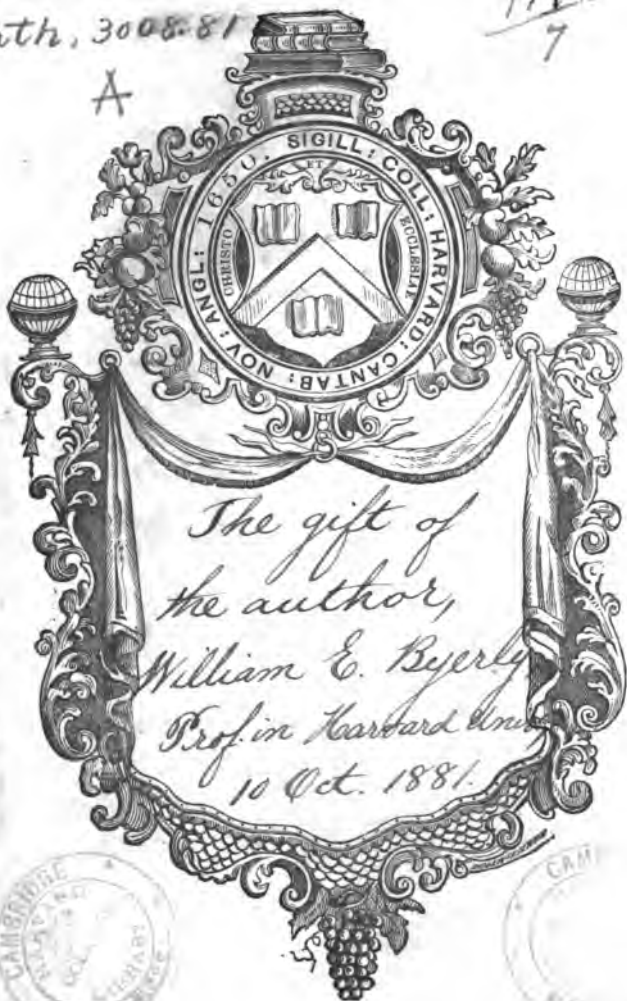 ath, 3008.81
7
A
SIGILL: COLL: HARVARD: CANTAB: NOV: ANGL: 1650.
ET
CHRISTO
ECCLESIAE
The gift of
the author,
William E. Byerly
Prof. in Harvard Univ
10 Oct. 1881.
CAMBRIDGE
CAM